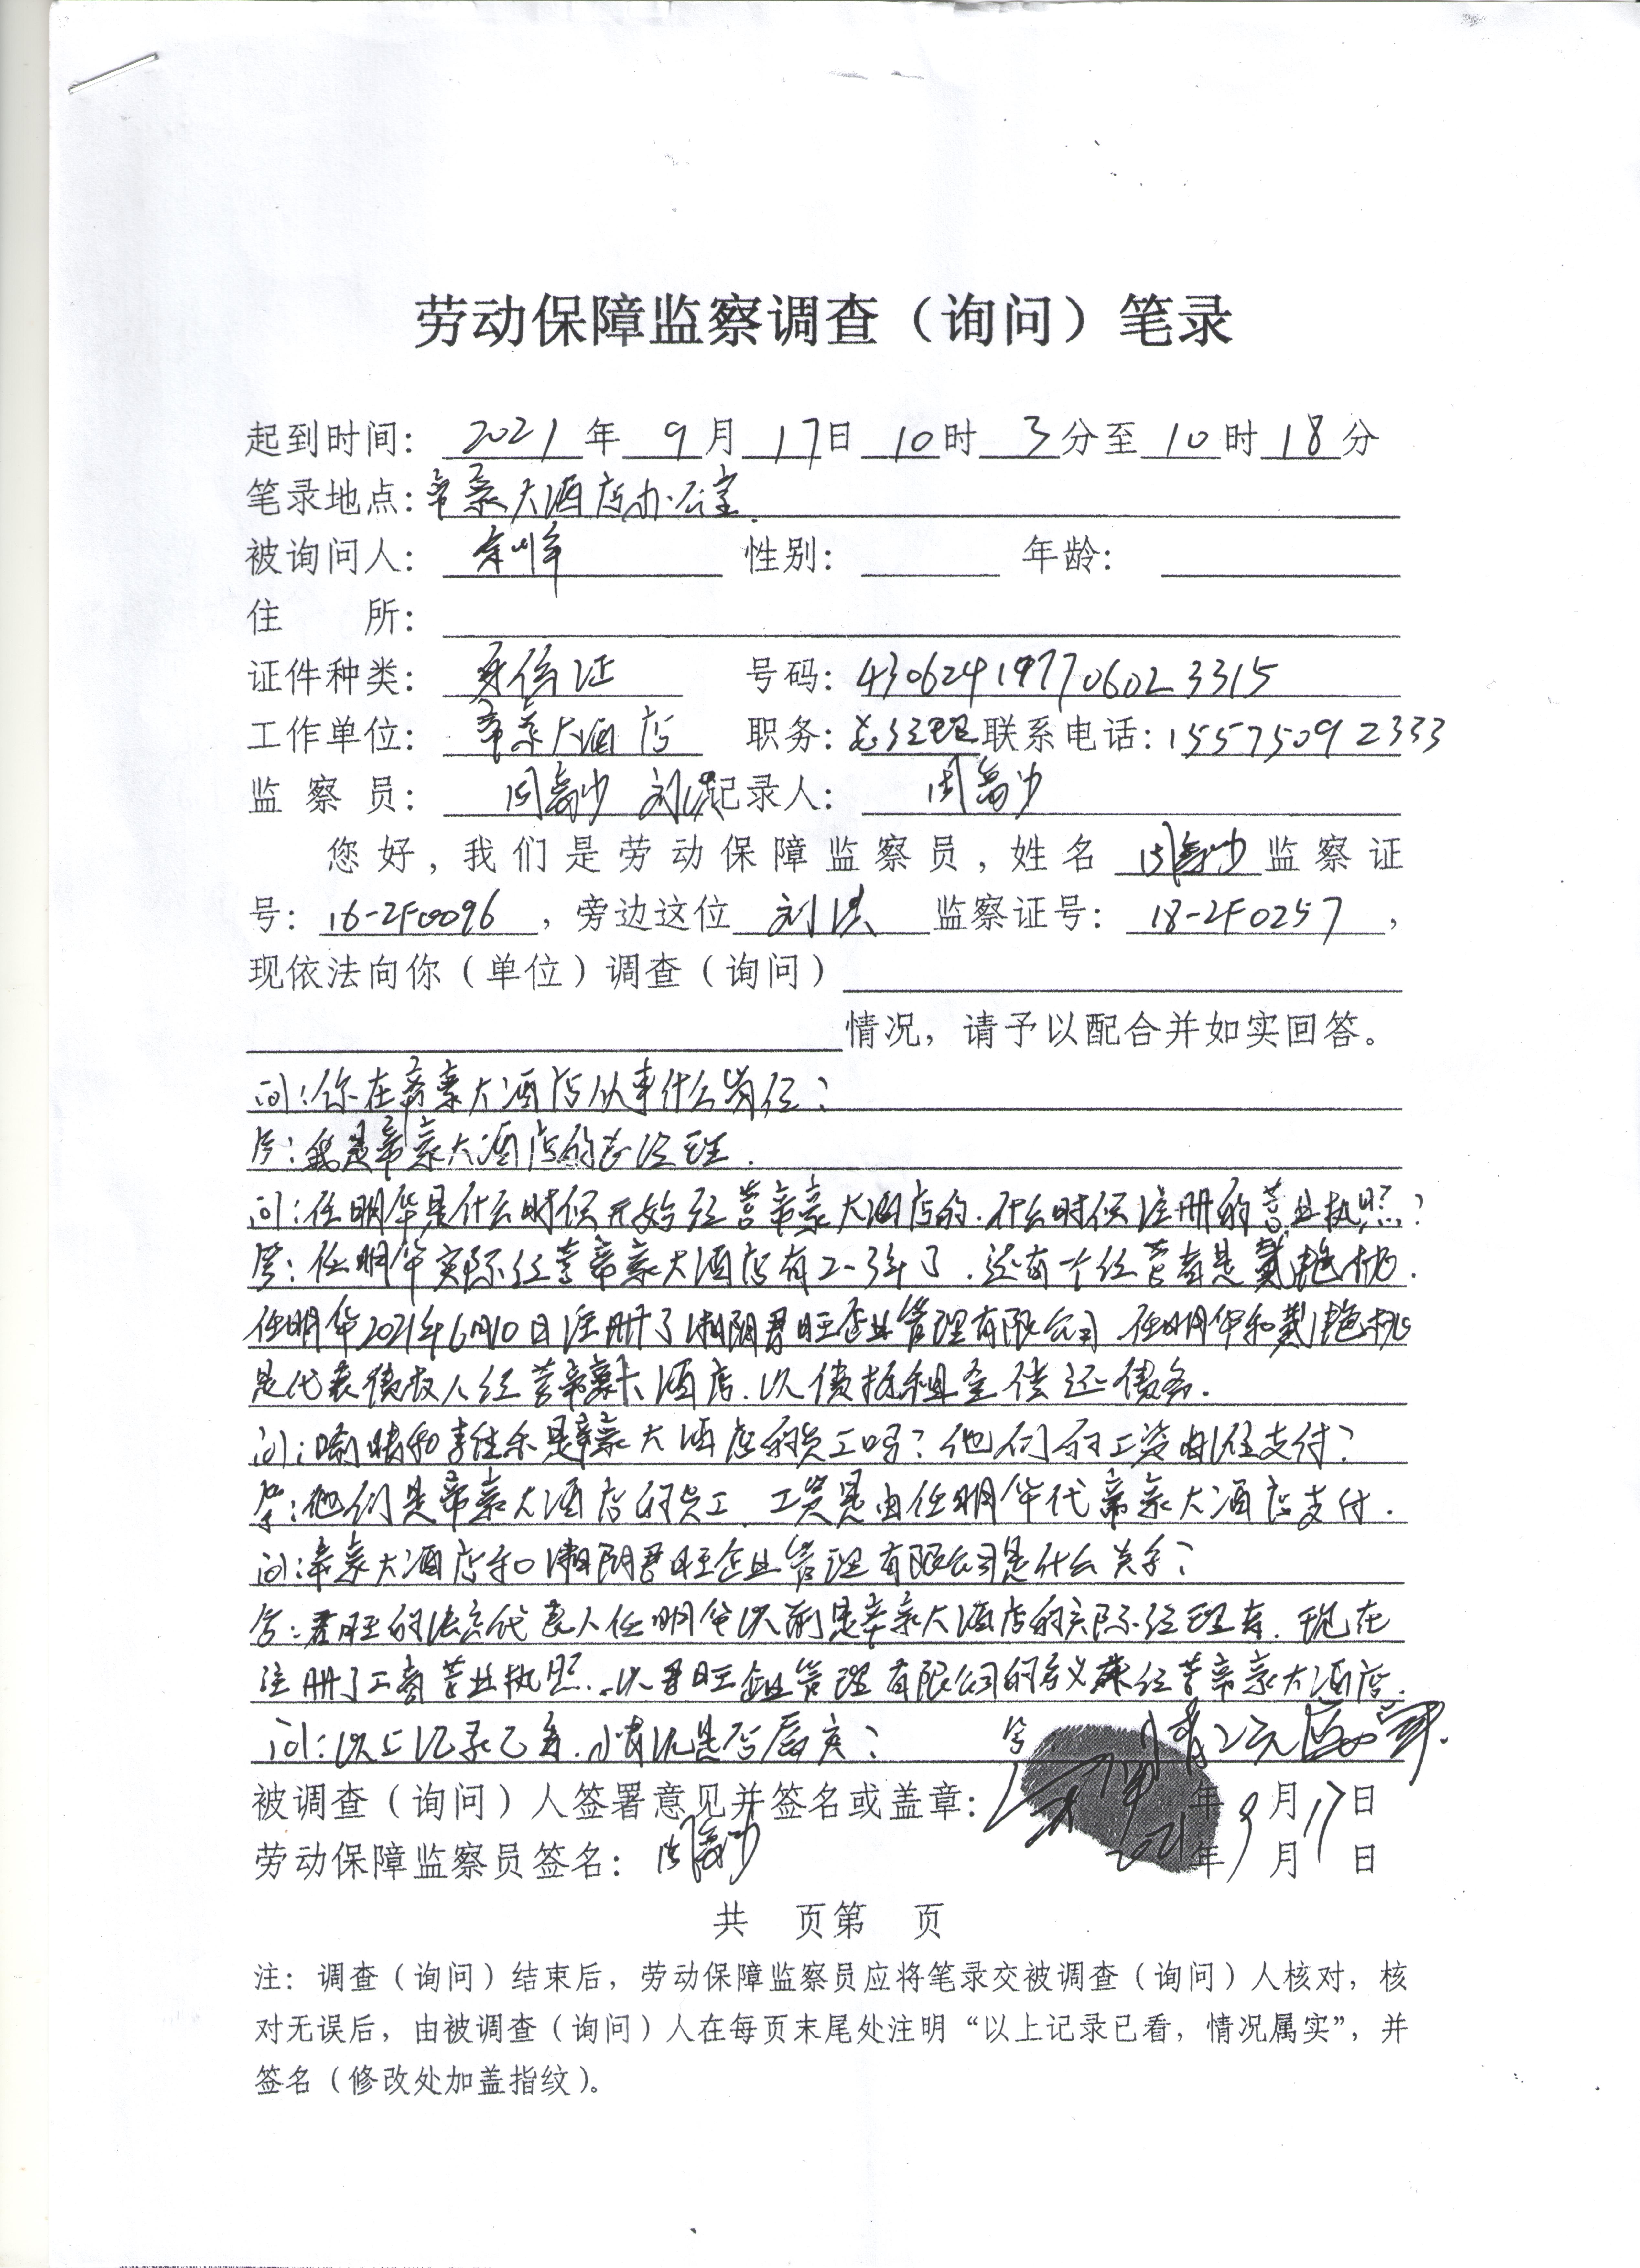 劳动保障监察调查（询问）笔录
起到时间：2021年9月17日10时3分至10时18分
笔录地点：帝豪大酒店办公室.
被询问人： 性别： 年龄：
住 所：
证件种类：身份证 号码：430624197706023315
工作单位：帝豪大酒店 职务：总经理 联系电话：15575092333
监 察 员： 刘洪 记录人：
您好，我们是劳动保障监察员，姓名 监察证
号：16-2F0096，旁边这位 刘洪 监察证号：18-2F0257，
现依法向你（单位）调查（询问）
情况，请予以配合并如实回答。
问：你在帝豪大酒店从事什么岗位？
答：我是帝豪大酒店的总经理.
问：任明华是什么时候开始经营帝豪大酒店的.什么时候注册的营业执照？
答：任明华实际经营帝豪大酒店有2-3年了.还有个经营者是戴艳桃.
任明华2021年6月10日注册了湘阴君旺企业管理有限公司.任明华和戴艳桃
是代表债权人经营帝豪大酒店.以债抵租金偿还债务.
问：喻晴和李佳乐是帝豪大酒店的员工吗？他们的工资由谁支付？
答：他们是帝豪大酒店的员工.工资是由任明华代帝豪大酒店支付.
问：帝豪大酒店和湘阴君旺企业管理有限公司是什么关系？
答：君旺的法定代表人任明华以前是帝豪大酒店的实际经理者.现在
注册了工商营业执照.以君旺企业管理有限公司的名义来经营帝豪大酒店.
问：以上记录已看.情况是否属实？ 答：情况属实.
被调查（询问）人签署意见并签名或盖章： 2021年9月17日
劳动保障监察员签名： 年 月 日
共 页第 页
注：调查（询问）结束后，劳动保障监察员应将笔录交被调查（询问）人核对，核
对无误后，由被调查（询问）人在每页末尾处注明“以上记录已看，情况属实”，并
签名（修改处加盖指纹）。